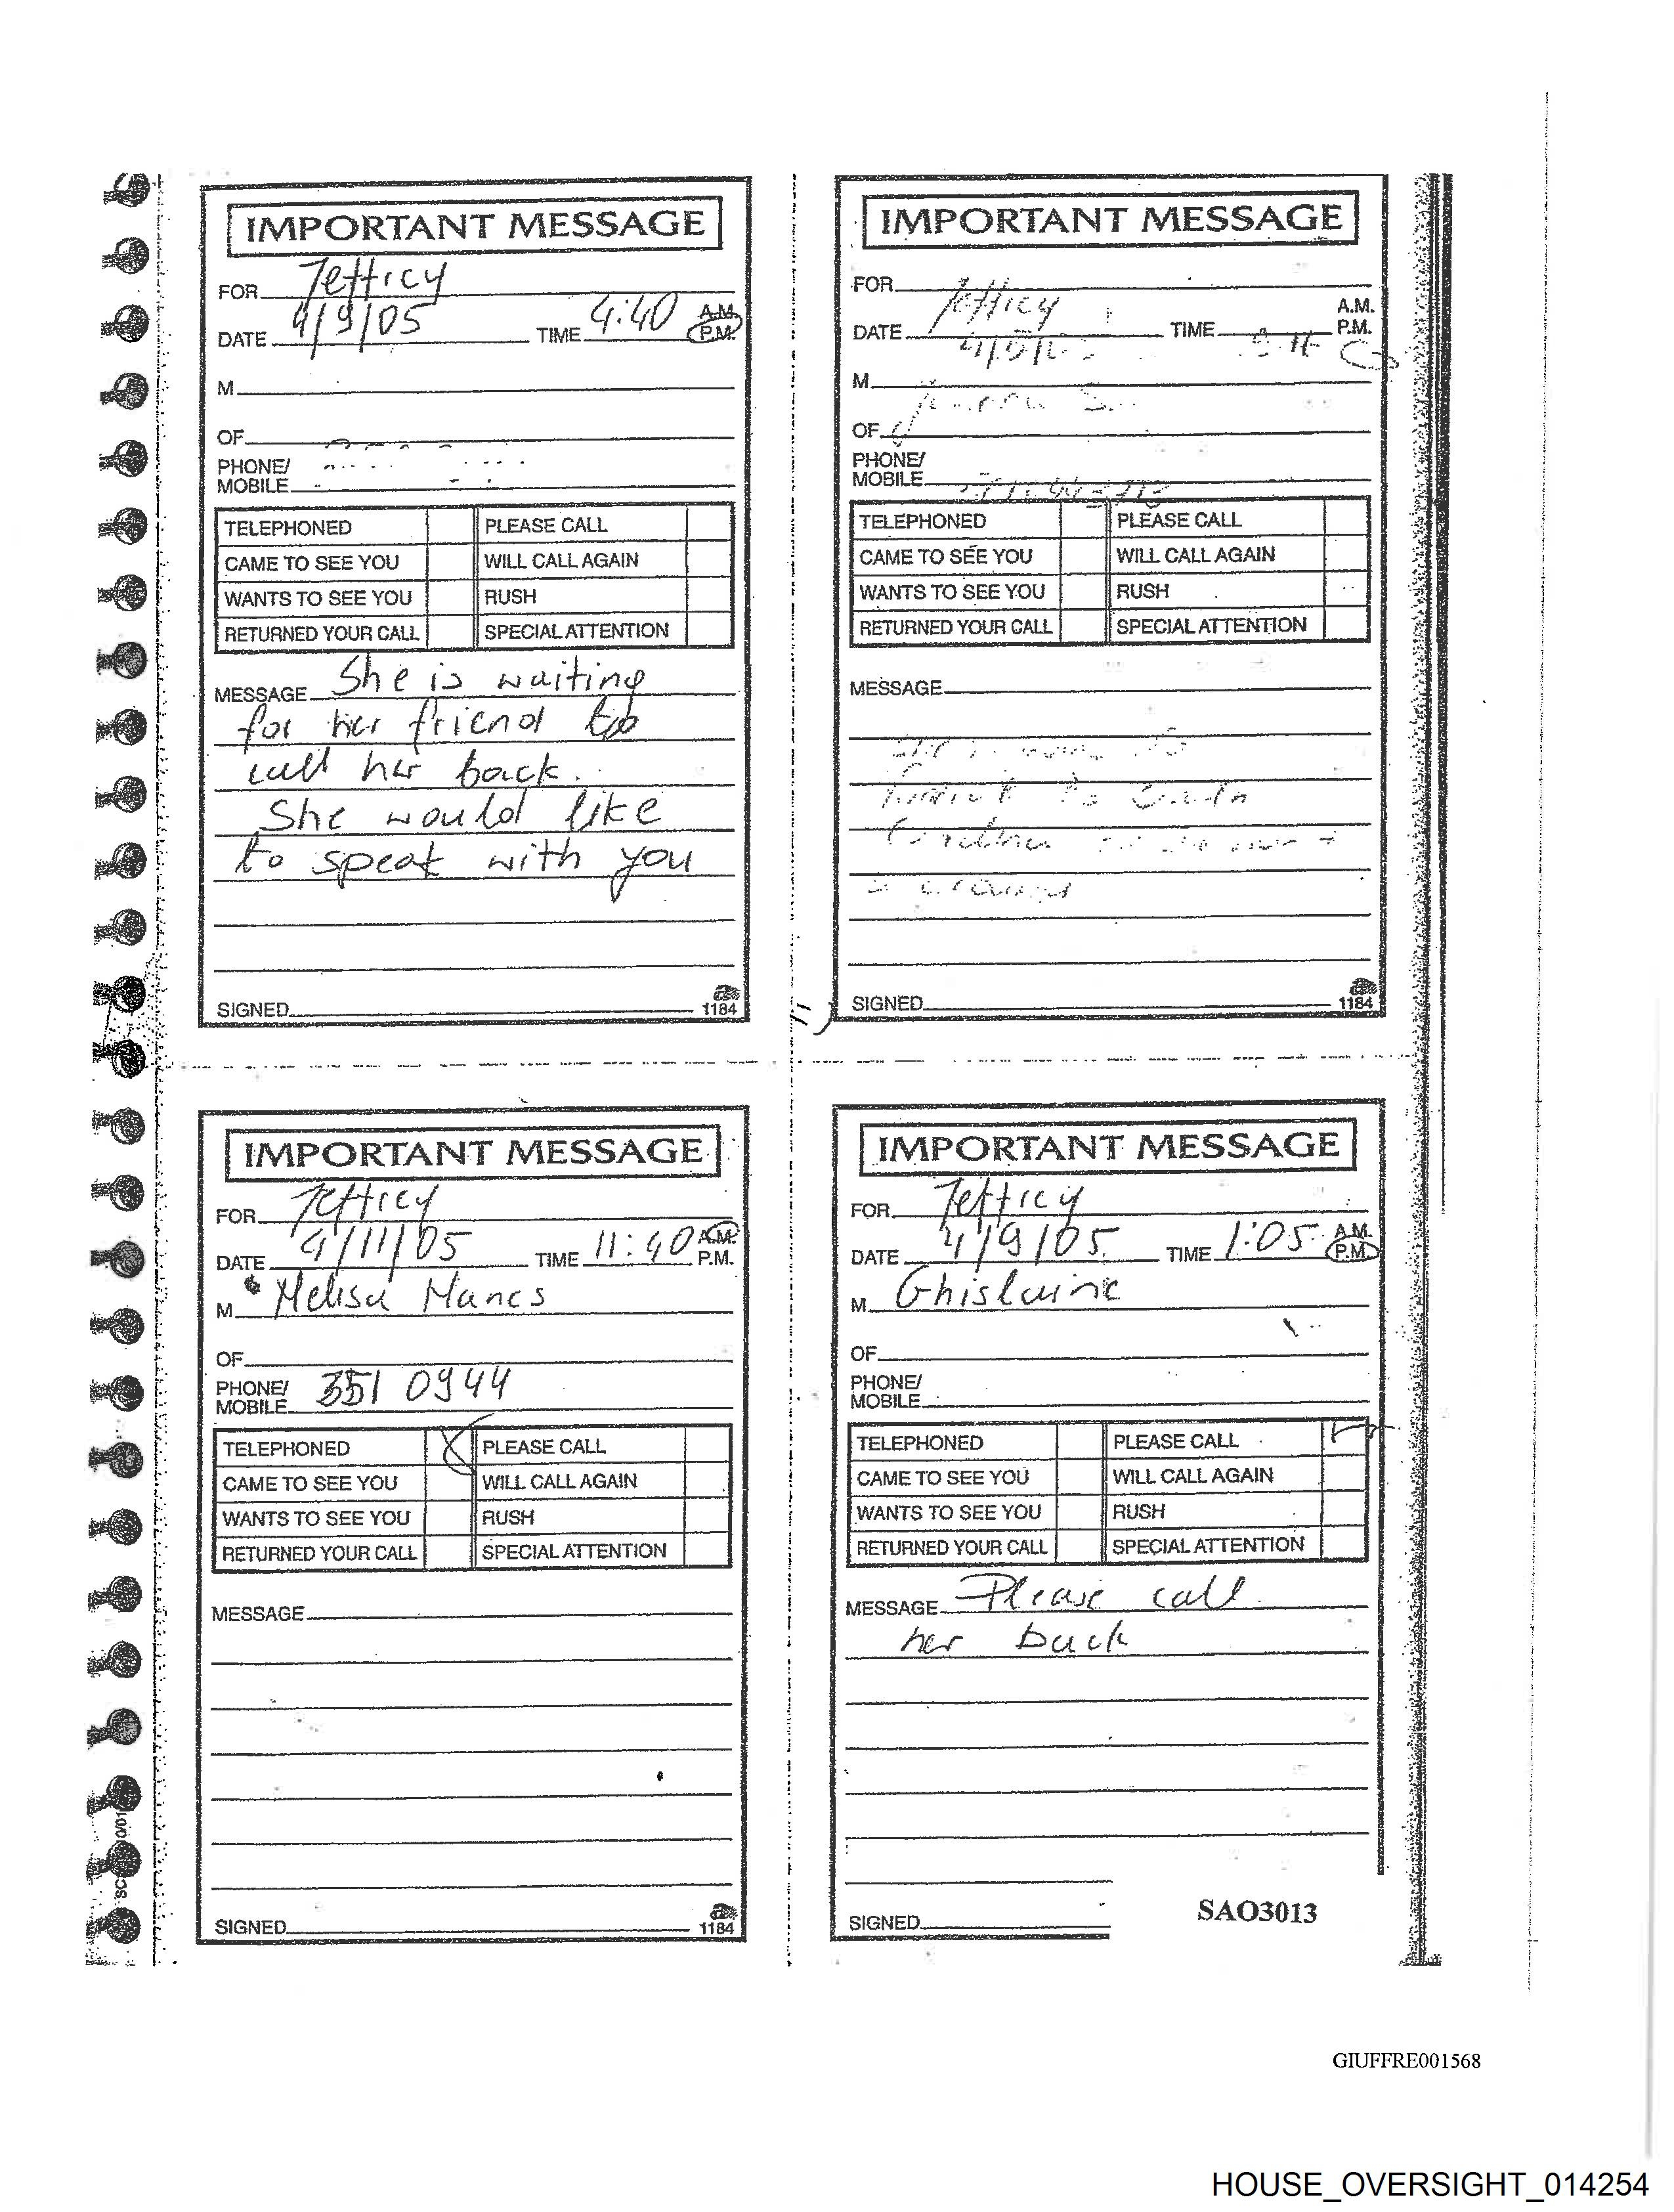 IMPORTANT MESSAGE
FOR Jeffrey
DATE 4/9/05 TIME 4:40 A.M. P.M.
M
OF
PHONE/
MOBILE
TELEPHONED PLEASE CALL
CAME TO SEE YOU WILL CALL AGAIN
WANTS TO SEE YOU RUSH
RETURNED YOUR CALL SPECIAL ATTENTION
MESSAGE She is waiting
for her friend to
call her back.
She would like
to speak with you
SIGNED
1184
IMPORTANT MESSAGE
FOR
Jeffrey
DATE TIME A.M. P.M.
M
OF
PHONE/
MOBILE
TELEPHONED PLEASE CALL
CAME TO SEE YOU WILL CALL AGAIN
WANTS TO SEE YOU RUSH
RETURNED YOUR CALL SPECIAL ATTENTION
MESSAGE
SIGNED
1184
IMPORTANT MESSAGE
FOR Jeffrey
DATE 4/11/05 TIME 11:40 A.M. P.M.
M Melisa
OF
PHONE/
MOBILE 351 0944
TELEPHONED PLEASE CALL
CAME TO SEE YOU WILL CALL AGAIN
WANTS TO SEE YOU RUSH
RETURNED YOUR CALL SPECIAL ATTENTION
MESSAGE
SIGNED
1184
IMPORTANT MESSAGE
FOR Jeffrey
DATE 4/9/05 TIME 1:05 A.M. P.M.
M Ghislaine
OF
PHONE/
MOBILE
TELEPHONED PLEASE CALL
CAME TO SEE YOU WILL CALL AGAIN
WANTS TO SEE YOU RUSH
RETURNED YOUR CALL SPECIAL ATTENTION
MESSAGE Please call
her back
SIGNED
SAO3013
GIUFFRE001568
HOUSE_OVERSIGHT_014254